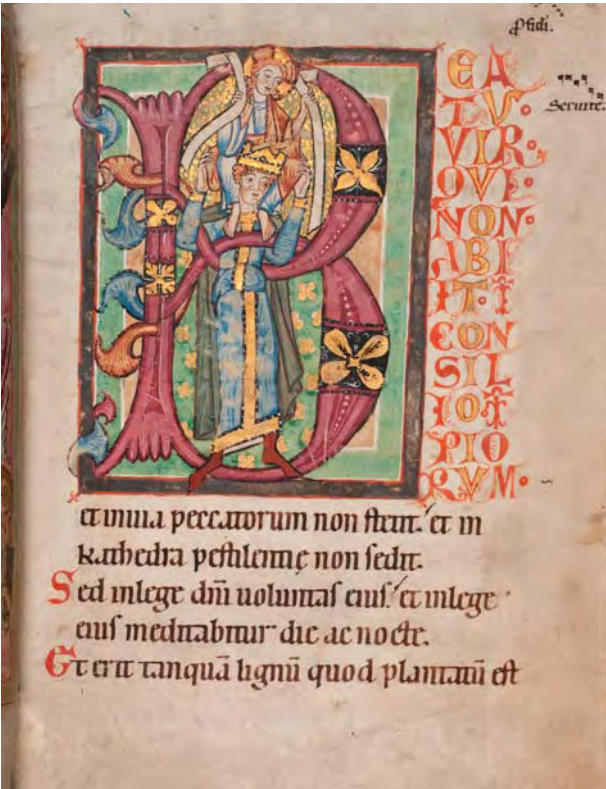 P̱sidi.
Seruite.
B
EA
TV·
VIR·
QVE·
NON·
ABI
IT·ī
CON
SIL
IOī
PIO
RVM·
et inuia peccatorum non stetit. et in
kathedra pestilentię non sedit.
Sed inlege dn̄i uoluntas eius. et inlege
eius meditabitur die ac nocte.
Et erit tanquā lignū quod plantatū est